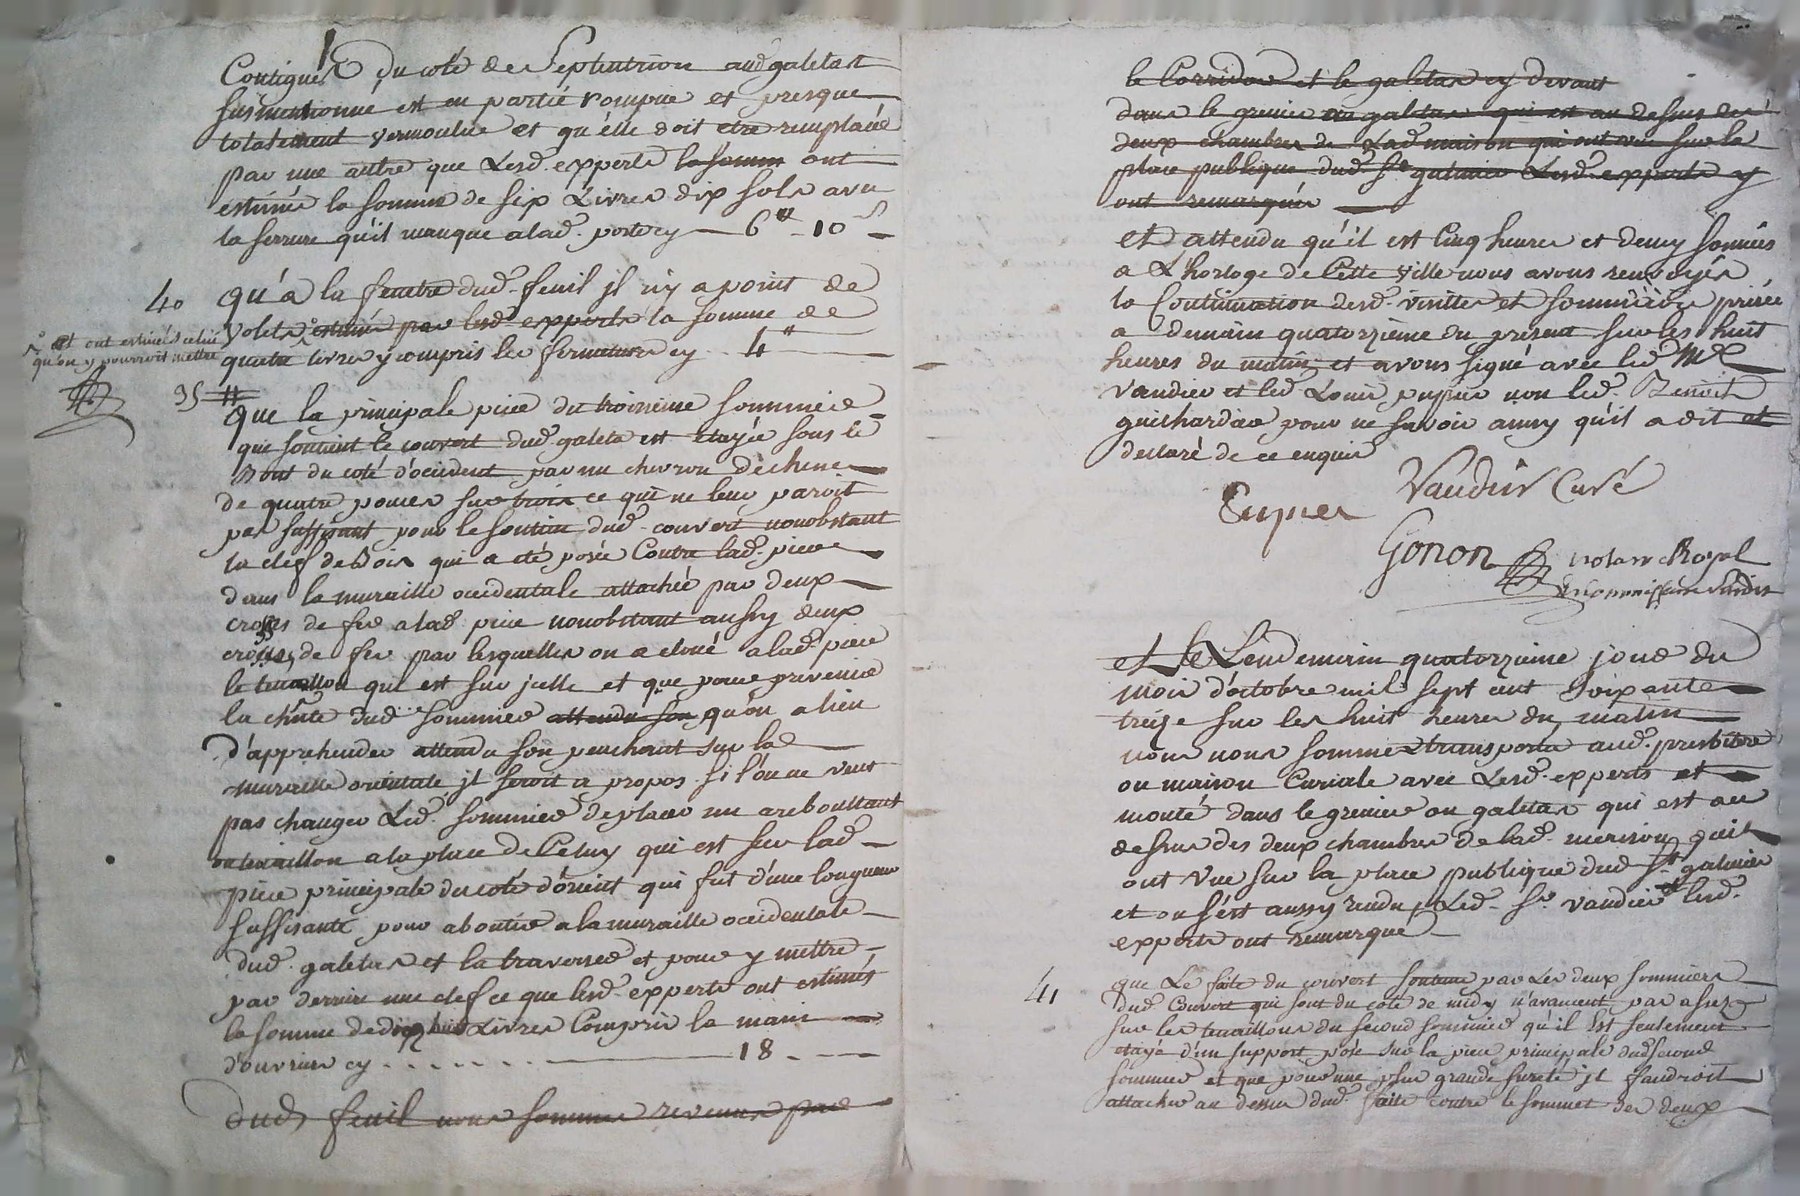 Contigue du coté de Septentrion aud galetat
susmentionné est en partié rompue et presque
totalement vermoulue et qu'elle doit etre remplacée
par une autre que Lesd. experts la somm ont
estimés la somme de six Livres dix sols avec
la serrure qu'il manque a lad. porte cy — 6 ₶ 10 s
40 qu'a la fenetre dud. feuil jl n'y a point de
volets estimée par lesd experts la somme de
et ont estimés celui
qu'on y pourroit mettre
quatre livres y compris les fermatures cy 4 ₶
que la principale piece du troisieme sommier
que soutient le couvert dud. galeta est etayée sous le
Bout du coté d'occident par un chevron de chene
de quatre pouces sur trois ce qui ne leur paroit
pas suffisant pour le soutien dud. couvert nonobstant
la clef de Bois qui a été posée Contre lad. piece
dans la muraille occidentale attachée par deux
crosses de fer a lad. piece nonobstant aussy deux
crosses de fer par lesquelles on a cloué a lad piece
le travaillon qui est sur jcelle et que pour prevenir
la chute dud sommier attendu son qu'on a lieu
d'apprehender attendu son penchant sur la
muraille orientale jl seroit a propos si l'on ne veut
pas changer Led. sommier de placer un areboutant
ou travaillon a la place de Celuy qui est sur lad
piece principale du coté d'orient qui fut d'une longueur
suffisante pour aboutir a la muraille occidentale
dud. galetas et la traverser et pour y mettre
par derriere une clef ce que lesd. experts ont estimés
la somme de dix huit Livres Compris la main
d'ouvriere cy . . . . . . . 18
dud feuil nous sommes revenus par
le Corridor et le galetas cy devant
dans le grenier ou galetas qui est au dessus des
deux chambres de Lad maison qui ont vue sur la
place publique dud. St galmier Lesd. experts y
ont remarqués
et attendu qu'il est Cinq heures et demy sonnées
a L'horloge de Cette ville nous avons renvoyés
la Continuation desd. visittes et sommaire prisée
a demain quatorzieme du present sur les huit
heures du matin et avons signé avec led. Me
vaudier et led Louis pupier non led. Benoit
guichardier pour ne savoir ainsy qu'il a dit et
declaré de ce enquis
Vaudier Curé
Pupier
Gonon notaire Royal
Commissaire Susdit
et Le Lendemain quatorzieme jour du
mois d'octobre mil sept cent soixante
treize sur les huit heures du matin
nous nous sommes transportés aud. presbitere
ou maison Curiale avec Lesd. experts et
monté dans le grenier ou galetas qui est au
dessus des deux chambres de lad. maison qui
ont vue sur la place publique dud St galmier
et ou s'est aussy rendu Led. Sr. vaudier lesd.
experts ont remarqué
41 que Le faite du couvert soutenu par Les deux sommiers
dud. Couvert qui sont du coté de midy n'avancent pas assez
sur les travaillons du second sommier qu'il Est seulement
etayé d'un support posé sur la piece principale dud second
sommier et que pour une plus grande sureté jl faudroit
attacher au dessus dud. faite contre le sommet des deux